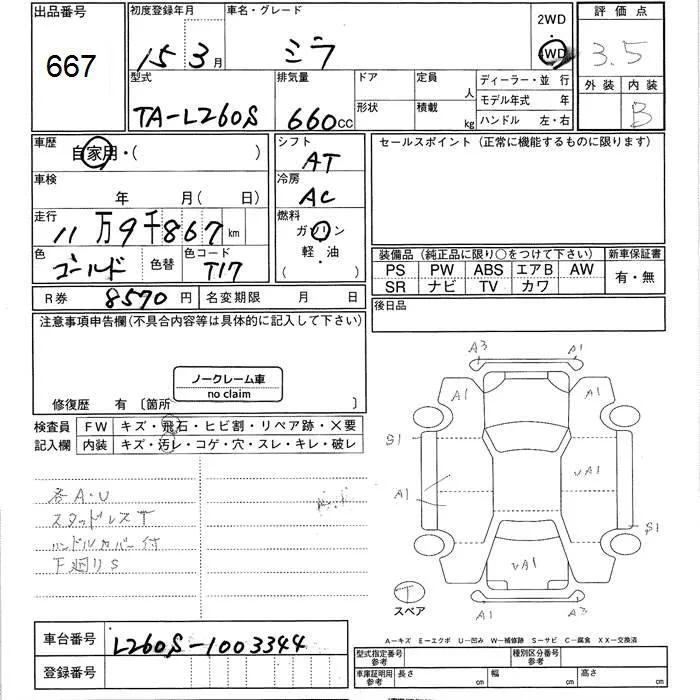 出品番号
667
初度登録年月
15 3月
車名・グレード
ミラ
2WD
・
4WD
評価点
3.5
外装 内装
B
型式
TA-L260S
排気量
660cc
ドア
形状
定員 人
積載 kg
ディーラー・並 行
モデル年式 年
ハンドル 左・右
車歴
自家用・( )
車検
年 月(日)
走行
11万9千867km
色
ゴールド
色替
色コード
T17
シフト
AT
冷房
AC
燃料
ガソリン
軽・油
( )
セールスポイント (正常に機能するものに限ります)
装備品 (純正品に限り○をつけて下さい)
PS PW ABS エアB AW
SR ナビ TV カワ
新車保証書
有・無
R券 8570円
名変期限 月 日
後日品
注意事項申告欄(不具合内容等は具体的に記入して下さい)
ノークレーム車
no claim
修復歴 有 〔箇所 〕
検査員
記入欄
FW キズ・飛石・ヒビ割・リペア跡・×要
内装 キズ・汚レ・コゲ・穴・スレ・キレ・破レ
各A・U
スタッドレスT
ハンドルカバー付
下廻りS
A3 A1
A1 A1
S1
UA1
A1
S1
UA1
A1 A3
T
スペア
A-キズ E-エクボ U-凹み W-補修跡 S-サビ C-腐食 XX-交換済
車台番号
L260S-1003344
登録番号
型式指定番号
参考
種別区分番号
参考
車庫証明用
参考
長さ cm
幅 cm
高さ cm